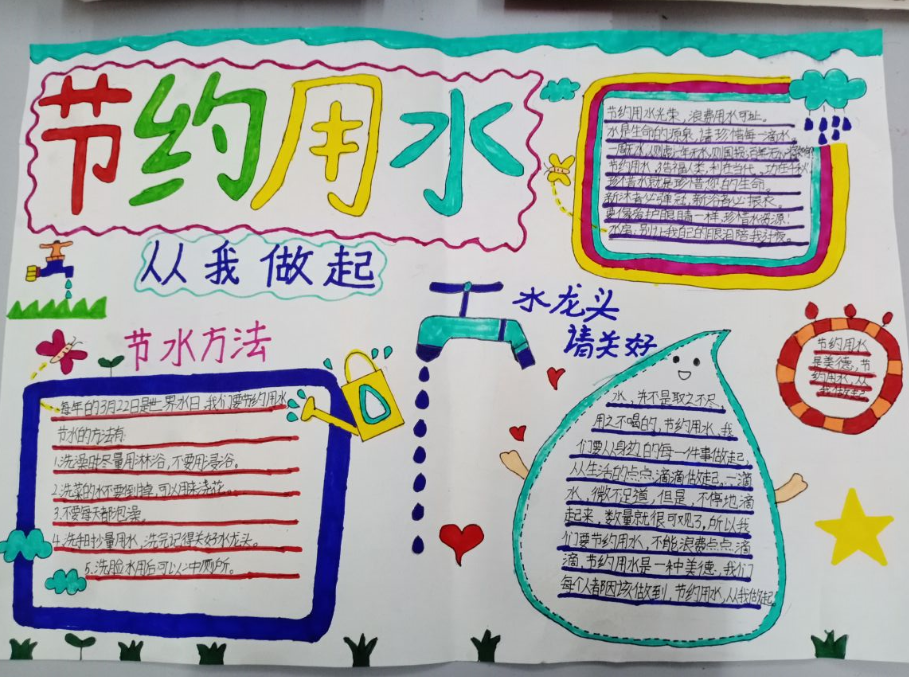 节约用水
从我做起
节约用水光荣，浪费用水可耻。
水是生命的源泉，请珍惜每一滴水。
节约用水，造福人类，利在当代，功在千秋。
珍惜水就是珍惜您的生命。
新沐者必弹冠，新浴者必振衣。
要像爱护眼睛一样珍惜水资源！
水龙头
请关好
节水方法
每年的3月22日是世界水日，我们要节约用水
节水的方法有
1.洗澡时尽量用淋浴，不要用浸浴。
2.洗菜的水不要倒掉，可以用来浇花。
3.不要每天都泡澡。
4.洗手时少量用水，洗完记得关好水龙头。
5.洗脸水用后可以冲厕所。
水，并不是取之不尽，
用之不竭的，节约用水，我
们要从身边的每一件事做起，
从生活的点点滴滴做起，一滴
水，微不足道，但是，不停地滴
起来，数量就很可观了，所以我
们要节约用水，不能浪费点点滴
滴，节约用水是一种美德，我们
每个人都因该做到，节约用水，从我做起
节约用水
是美德，节
约用水，从
我做起